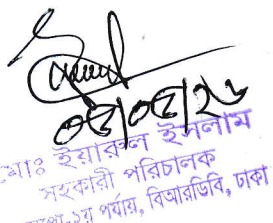 ০৫/০৫/২৬
মোঃ ইয়ারুল ইসলাম
সহকারী পরিচালক
পর্যায়, বিআরডিবি, ঢাকা